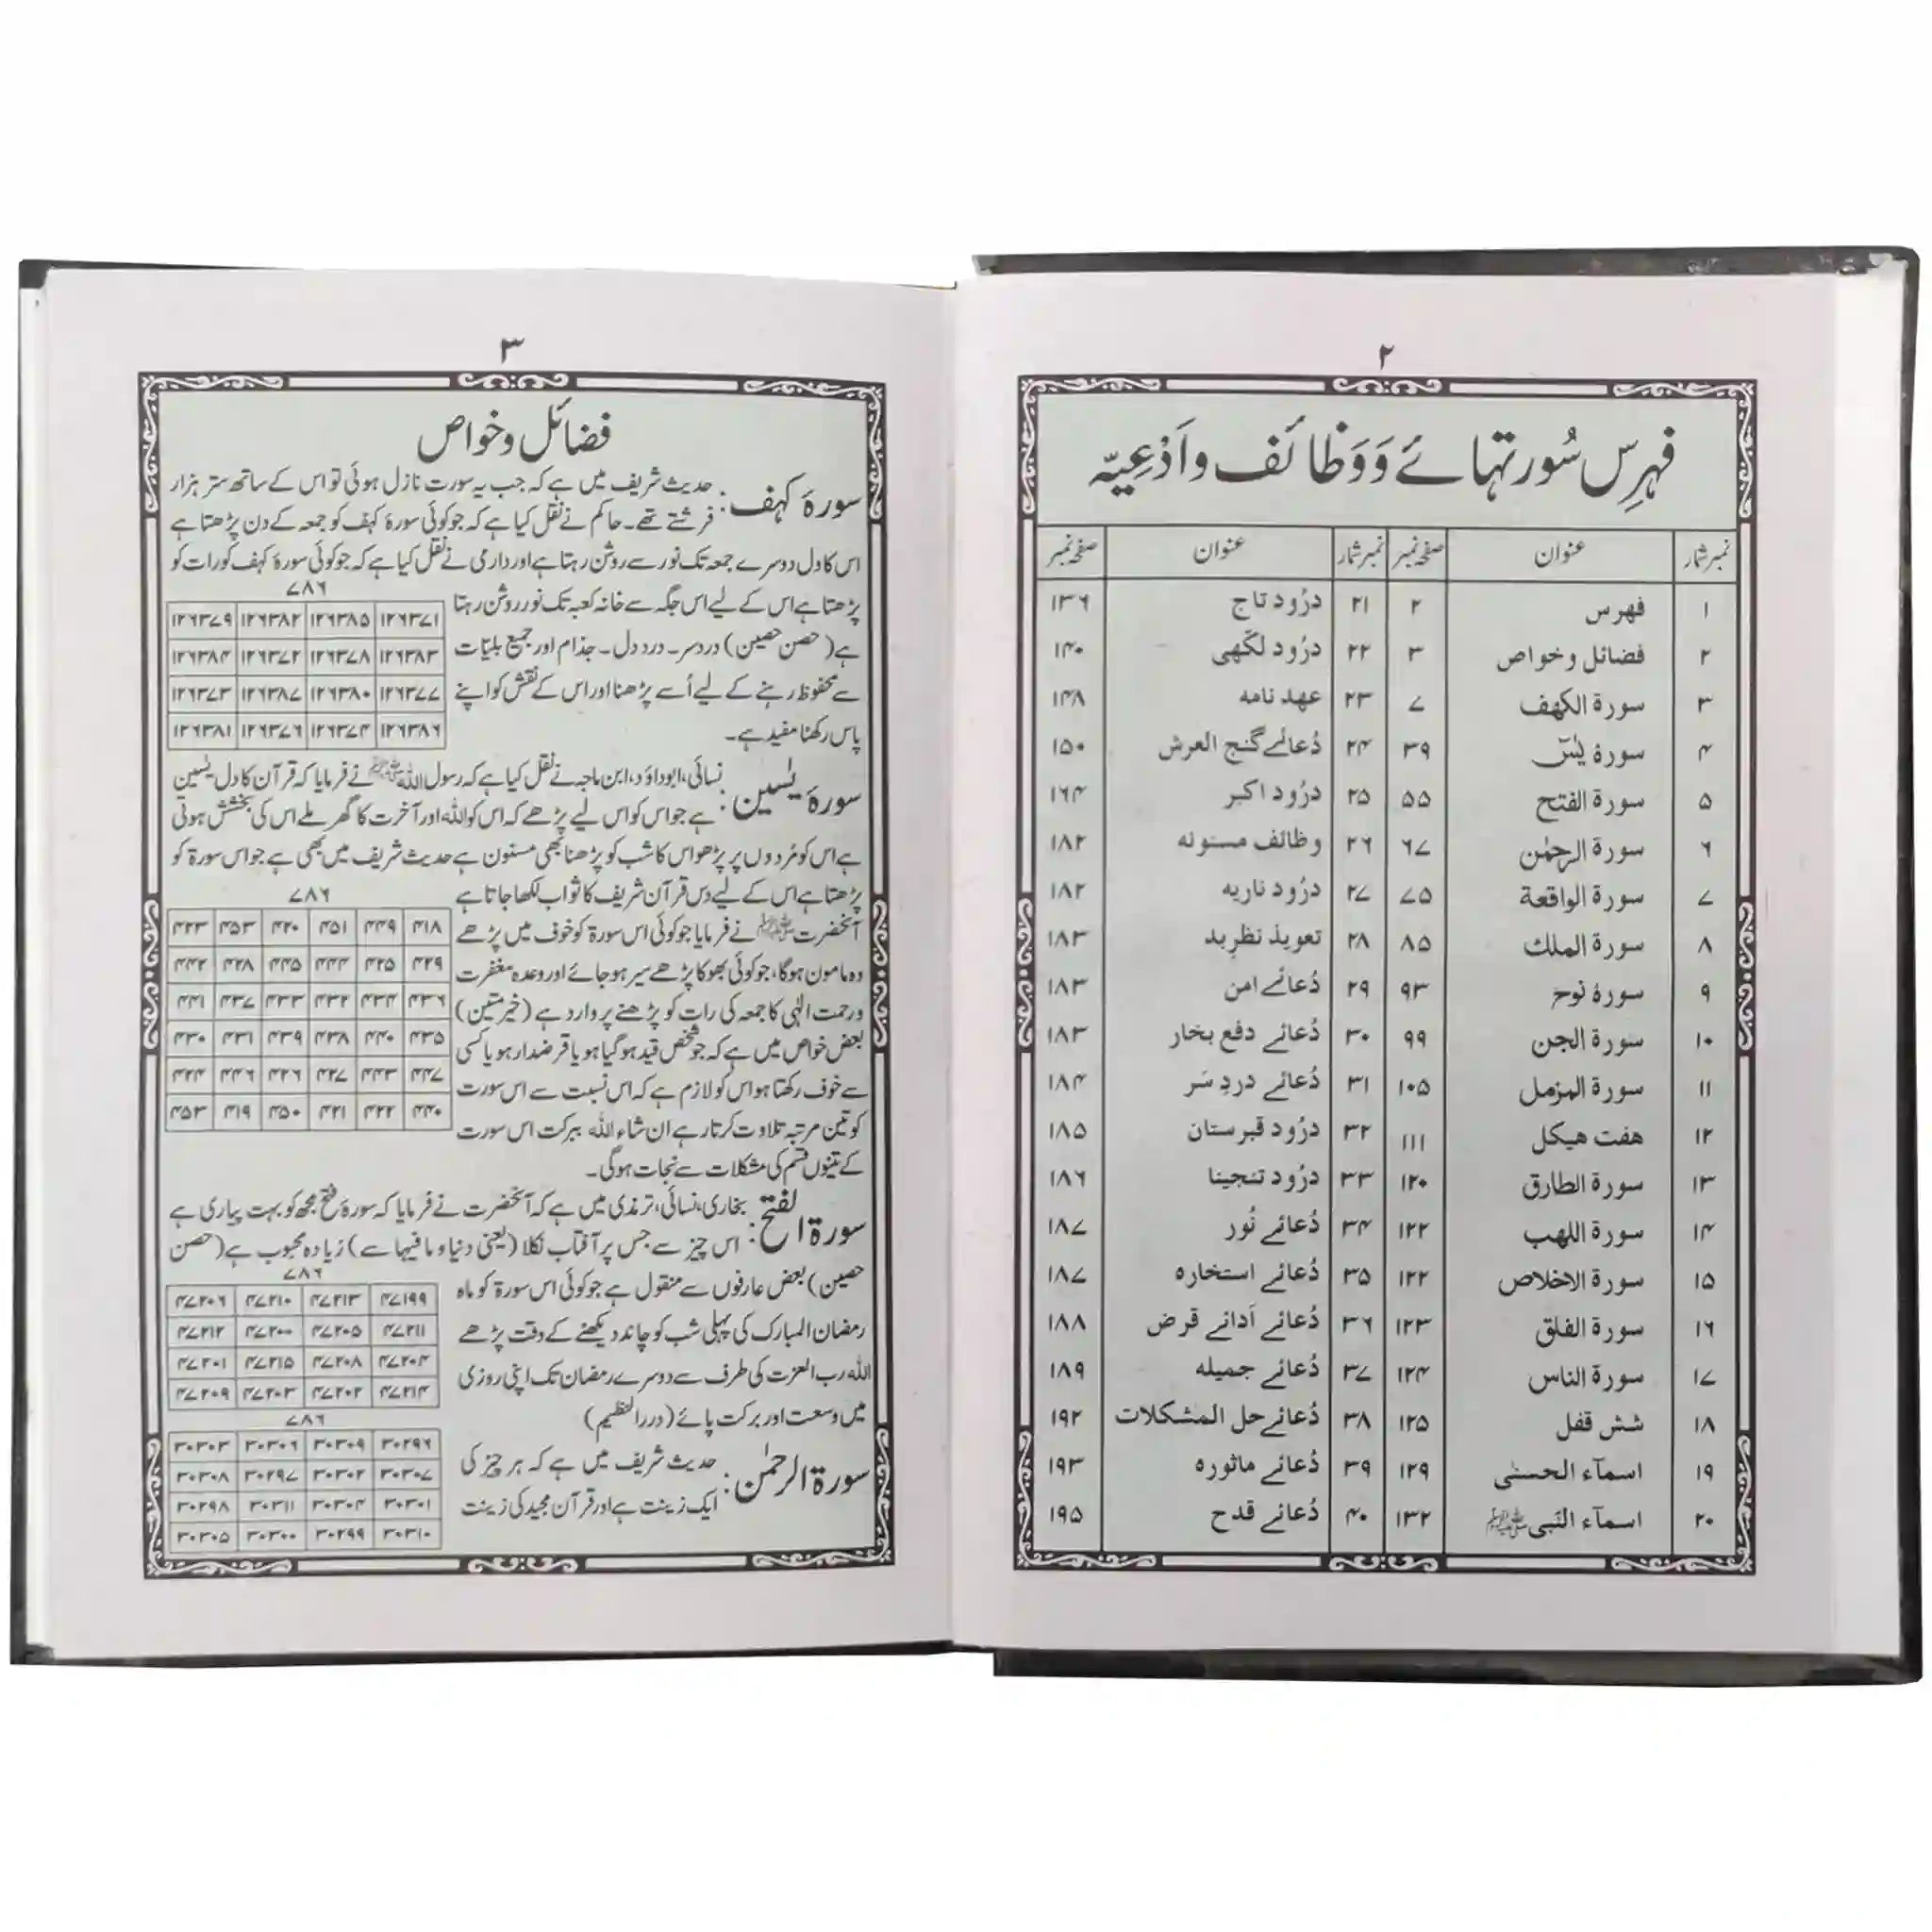 ۲
فہرس سُورتہائے وَوَظائف واَدْعِیہّ
نمبر شمار عنوان صفحہ نمبر نمبر شمار عنوان صفحہ نمبر
۱ فہرس ۲ ۲۱ درُود تاج ۱۳۶
۲ فضائل و خواص ۳ ۲۲ درُود لکّھی ۱۴۰
۳ سورۃ الکھف ۷ ۲۳ عہد نامہ ۱۴۸
۴ سورۂ یٰسٓ ۳۹ ۲۴ دُعائے گنج العرش ۱۵۰
۵ سورۃ الفتح ۵۵ ۲۵ درُود اکبر ۱۶۴
۶ سورۃ الرحمٰن ۶۷ ۲۶ وظائف مسنونہ ۱۸۲
۷ سورۃ الواقعۃ ۷۵ ۲۷ درُود ناریہ ۱۸۲
۸ سورۃ الملک ۸۵ ۲۸ تعویذ نظرِبد ۱۸۳
۹ سورۂ نوح ۹۳ ۲۹ دُعائے امن ۱۸۳
۱۰ سورۃ الجن ۹۹ ۳۰ دُعائے دفع بخار ۱۸۳
۱۱ سورۃ المزمل ۱۰۵ ۳۱ دُعائے دردِ سَر ۱۸۴
۱۲ ھفت ھیکل ۱۱۱ ۳۲ درُود قبرستان ۱۸۵
۱۳ سورۃ الطارق ۱۲۰ ۳۳ درُود تنجینا ۱۸۶
۱۴ سورۃ اللھب ۱۲۲ ۳۴ دُعائے نُور ۱۸۷
۱۵ سورۃ الاخلاص ۱۲۲ ۳۵ دُعائے استخارہ ۱۸۷
۱۶ سورۃ الفلق ۱۲۳ ۳۶ دُعائے اَدائے قرض ۱۸۸
۱۷ سورۃ الناس ۱۲۴ ۳۷ دُعائے جمیلہ ۱۸۹
۱۸ شش قفل ۱۲۵ ۳۸ دُعائے حل المشکلات ۱۹۲
۱۹ اسمآء الحسنٰی ۱۲۹ ۳۹ دُعائے ماثورہ ۱۹۳
۲۰ اسمآء النّبی ﷺ ۱۳۲ ۴۰ دُعائے قدح ۱۹۵
۳
فضائل و خواص
سورۂ کہف: حدیث شریف میں ہے کہ جب یہ سورت نازل ہوئی تو اس کے ساتھ ستر ہزار
فرشتے تھے۔ حاکم نے نقل کیا ہے کہ جو کوئی سورۂ کہف کو جمعہ کے دن پڑھتا ہے
اس کا دل دوسرے جمعہ تک نور سے روشن رہتا ہے اور دارمی نے نقل کیا ہے کہ جو کوئی سورۂ کہف کو رات کو
پڑھتا ہے اس کے لیے اس جگہ سے خانہ کعبہ تک نور روشن رہتا
ہے (حصن حصین) دردسر۔ درد دل۔ جذام اور جمیع بلیّات
سے محفوظ رہنے کے لیے اُسے پڑھنا اور اس کے نقش کو اپنے
پاس رکھنا مفید ہے۔
۷۸۶
۱۲۶۳۷۱ ۱۲۶۳۸۵ ۱۲۶۳۸۲ ۱۲۶۳۷۹
۱۲۶۳۸۳ ۱۲۶۳۷۸ ۱۲۶۳۷۲ ۱۲۶۳۸۴
۱۲۶۳۷۷ ۱۲۶۳۸۰ ۱۲۶۳۸۷ ۱۲۶۳۷۳
۱۲۶۳۸۶ ۱۲۶۳۷۴ ۱۲۶۳۷۶ ۱۲۶۳۸۱
سورۂ یٰسین: نسائی، ابوداؤد، ابن ماجہ نے نقل کیا ہے کہ رسول اللہ ﷺ نے فرمایا کہ قرآن کا دل یٰسین
ہے جو اس کو اس لیے پڑھے کہ اس کو اللہ اور آخرت کا گھر ملے اس کی بخشش ہوتی
ہے اس کو مُردوں پر پڑھو اس کا شب کو پڑھنا بھی مسنون ہے حدیث شریف میں بھی ہے جو اس سورۃ کو
پڑھتا ہے اس کے لیے دس قرآن شریف کا ثواب لکھا جاتا ہے
آنحضرت ﷺ نے فرمایا جو کوئی اس سورۃ کو خوف میں پڑھے
وہ مامون ہوگا، جو کوئی بھوکا پڑھے سیر ہو جائے اور وعدہ مغفرت
ورحمت الٰہی کا جمعہ کی رات کو پڑھنے پر وارد ہے (خیر متین)
بعض خواص میں ہے کہ جو شخص قید ہو گیا ہو یا قرضدار ہو یا کسی
سے خوف رکھتا ہو اس کو لازم ہے کہ اس نسبت سے اس سورت
کو تین مرتبہ تلاوت کرتا رہے ان شاء اللہ ببرکت اس سورت
کے تینوں قسم کی مشکلات سے نجات ہوگی۔
۷۸۶
سورۃ الفتح: بخاری، نسائی، ترمذی میں ہے کہ آنحضرت نے فرمایا کہ سورۂ فتح مجھ کو بہت پیاری ہے
اس چیز سے جس پر آفتاب نکلا (یعنی دنیا و ما فیہا سے) زیادہ محبوب ہے (حصن
حصین) بعض عارفوں سے منقول ہے جو کوئی اس سورۃ کو ماہ
رمضان المبارک کی پہلی شب کو چاند دیکھنے کے وقت پڑھے
اللہ رب العزت کی طرف سے دوسرے رمضان تک اپنی روزی
میں وسعت اور برکت پائے (دررالنظیم)
۷۸۶
۴۷۱۹۹ ۴۷۲۱۳ ۴۷۲۱۰ ۴۷۲۰۶
۴۷۲۱۱ ۴۷۲۰۵ ۴۷۲۰۰ ۴۷۲۱۲
۴۷۲۰۴ ۴۷۲۰۸ ۴۷۲۱۵ ۴۷۲۰۱
۴۷۲۱۴ ۴۷۲۰۲ ۴۷۲۰۳ ۴۷۲۰۹
سورۃ الرحمٰن: حدیث شریف میں ہے کہ ہر چیز کی
ایک زینت ہے اور قرآن مجید کی زینت
۷۸۶
۳۰۲۹۶ ۳۰۳۰۹ ۳۰۳۰۶ ۳۰۳۰۳
۳۰۳۰۷ ۳۰۳۰۲ ۳۰۲۹۷ ۳۰۳۰۸
۳۰۳۰۱ ۳۰۳۰۴ ۳۰۳۱۱ ۳۰۲۹۸
۳۰۳۱۰ ۳۰۲۹۹ ۳۰۳۰۰ ۳۰۳۰۵